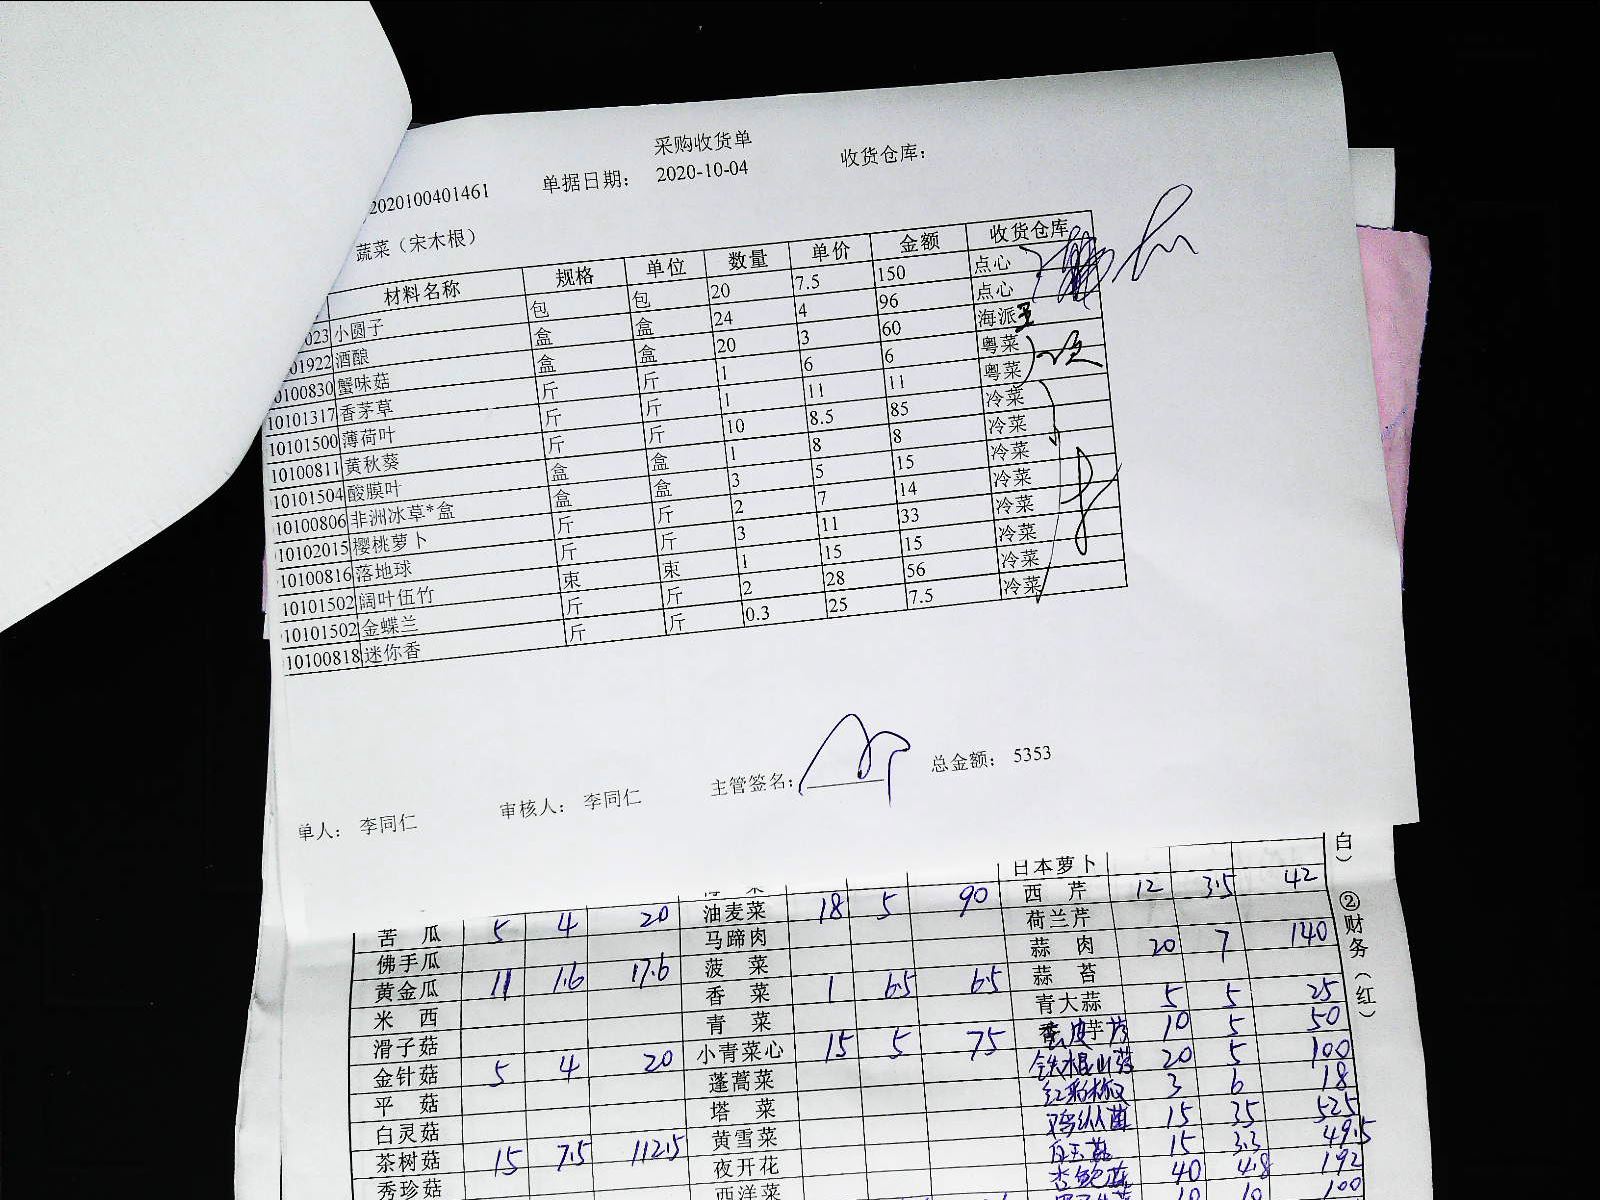 采购收货单
2020100401461 单据日期： 2020-10-04 收货仓库：
蔬菜（宋木根）
材料名称 规格 单位 数量 单价 金额 收货仓库
023 小圆子 包 包 20 7.5 150 点心
01922 酒酿 盒 盒 24 4 96 点心
0100830 蟹味菇 盒 盒 20 3 60 海派
10101317 香茅草 斤 斤 1 6 6 粤菜
10101500 薄荷叶 斤 斤 1 11 11 粤菜
10100811 黄秋葵 斤 斤 10 8.5 85 冷菜
10101504 酸膜叶 盒 盒 1 8 8 冷菜
10100806 非洲冰草*盒 盒 盒 3 5 15 冷菜
10102015 樱桃萝卜 斤 斤 2 7 14 冷菜
10100816 落地球 斤 斤 3 11 33 冷菜
10101502 阔叶伍竹 束 束 1 15 15 冷菜
10101502 金蝶兰 斤 斤 2 28 56 冷菜
10100818 迷你香 斤 斤 0.3 25 7.5 冷菜
单人： 李同仁 审核人： 李同仁 主管签名： 总金额： 5353
日本萝卜
苦瓜 5 4 20 油麦菜 18 5 90 西芹 12 3.5 42
佛手瓜 马蹄肉 荷兰芹
黄金瓜 11 1.6 17.6 菠菜 蒜肉 20 7 140
米西 香菜 1 6.5 6.5 蒜苔
滑子菇 青菜 青大蒜 5 5 25
金针菇 5 4 20 小青菜心 15 5 75 10 5 50
平菇 蓬蒿菜 铁棍山药 20 5 100
白灵菇 塔菜 3 6 18
茶树菇 15 7.5 112.5 黄雪菜 鸡纵菌 15 35 525
秀珍菇 夜开花 白玉菇 15 3.3 49.5
西洋菜 杏鲍菇 40 4.8 192
10 10 100
白） ②财务（红）